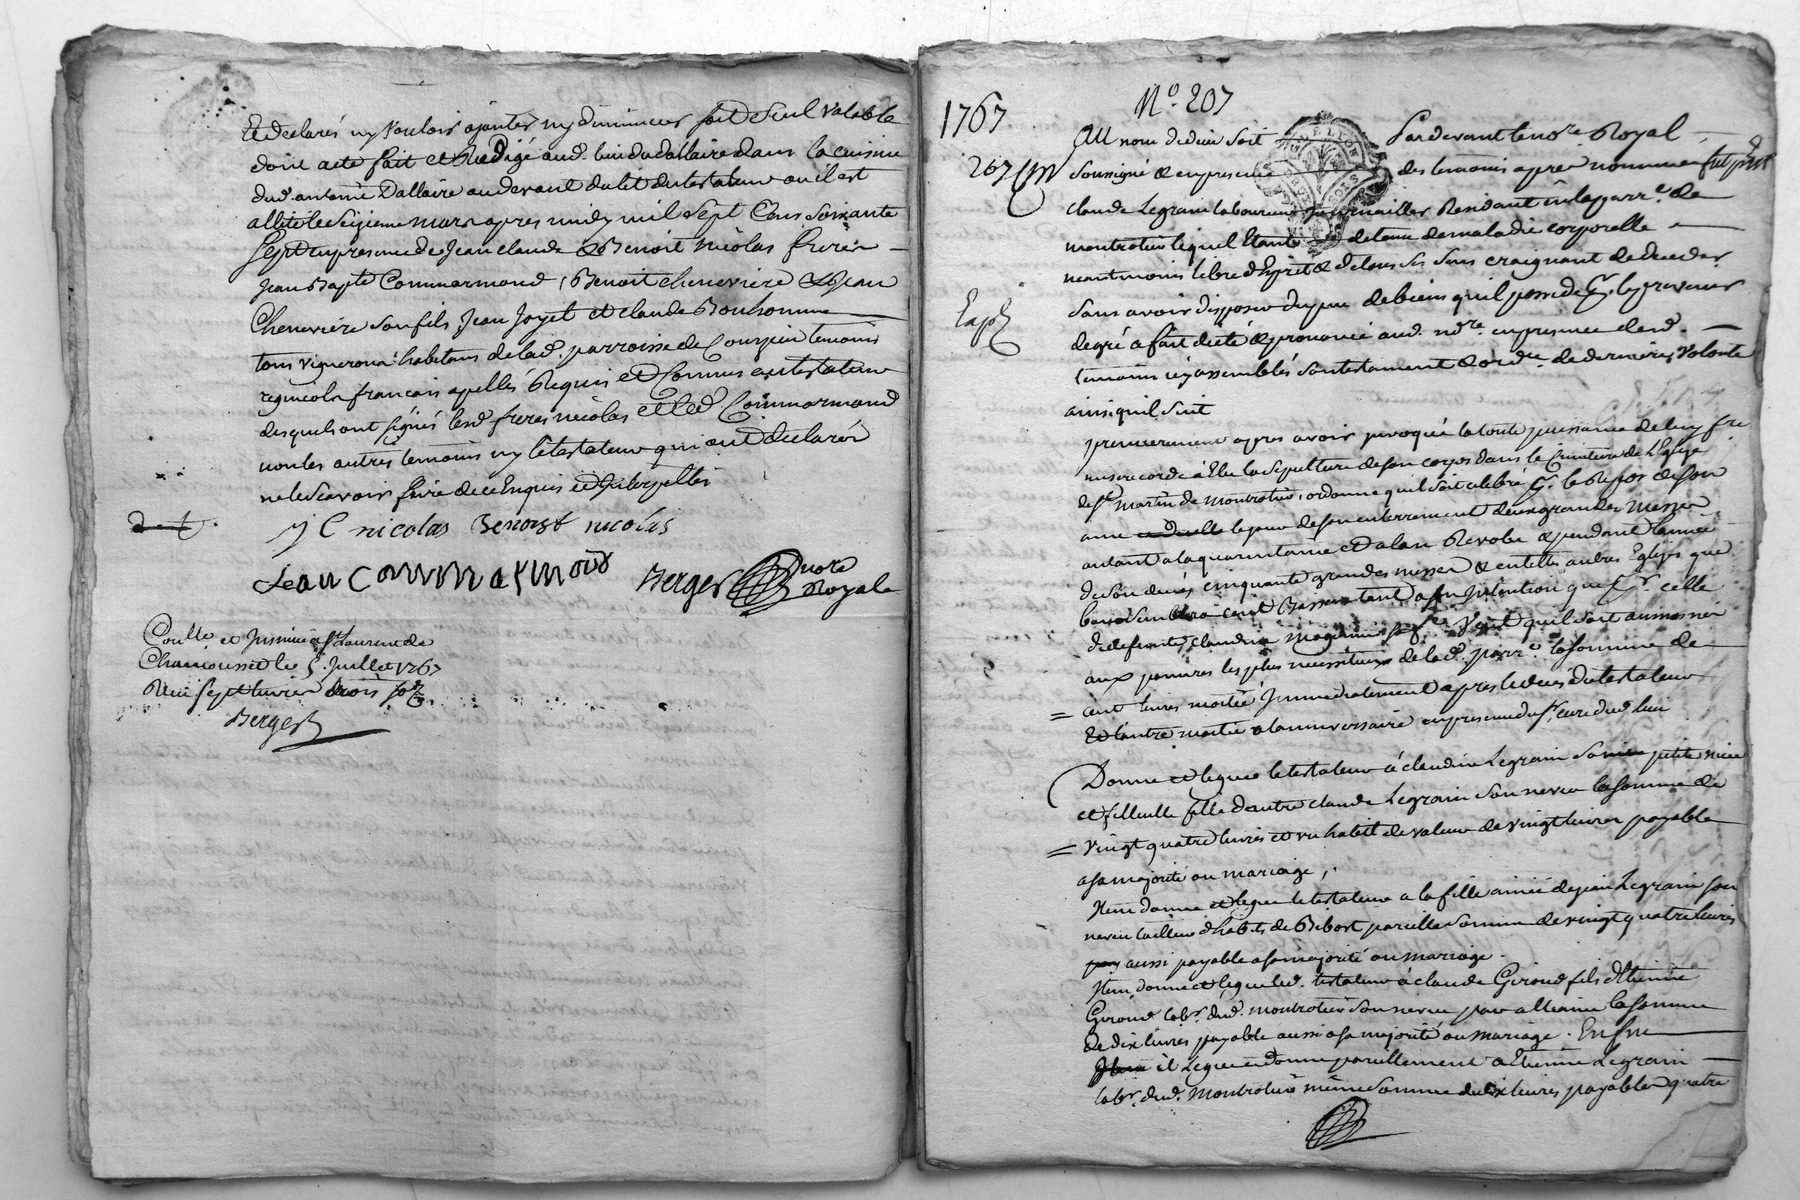 Et declarés ny Vouloir ajouter ny diminuer soit seul Valable
dont acte fait et Redigé aud. lieu du dallaire dans la cuisine
dud. antoine Dallaire au devant du lit du testateur ou il est
allité le seizieme mars apres midy mil Sept Cens Soixante
Sept en presence de Jean claude & Benoit Nicolas freres
Jean Bapte Commarmond, Benoit chenevriere & Jean
Chenevriere Son fils, Jean Joyet et claude Bonhomme
tous vignerons habitans de lad. parroisse de Courzieu temoins
regnicols francais apellés Requis et Connus au testateur
desquels ont signés lesd. freres nicolas et led. Commarmond
non les autres temoins ny le testateur qui ont declarés
ne le Scavoir faire de ce Enquis et Interpellés
J C nicolas Benoist nicolas
Jean Commarmond Berger nore
Royale
Conllé et Insinué a St Laurent de
Chamousset le 5 Juillet 1767
Reçu sept livres trois sols
Berger
1767
No. 207
207
Au nom de dieu soit Pardevant le nore. Royal
Soussigné & en presence des temoins apres nommés fut pnt
claude Legrain laboureur Residant en la parre. de
montrotier lequel Etant detenu de maladie corporelle
neantmoins libre d'Esprit & de tous ses sens craignant de deceder
Sans avoir disposer du peu de biens qu'il possede
degré a fait dicté & prononcé aud. nore. en presence desd.
temoins icy assemblés Son testament & ordce. de derniere Volonté
ainsi qu'il suit
premierement apres avoir invoqué la toute puissance de
misericorde à Elu la Sepulture de Son corps dans le Cimetiere de L'Eglise
de St martin de Montrotier, ordonne qu'il soit celebré pr. le Repos de Son
ame le jour de son enterrement deux grandes messes
autant a la quarantaine et a l'an Revolu & pendant l'année
de Son decés cinquante grandes messes & en telles autres Eglises que
bon Semblera cent Basses tant a son Intention que pr. celle
de defunte claudine Veut qu'il soit aumosné
aux pauvres les plus necessiteux de lad. parre. la Somme de
cent livres moitié Immediatement apres le deces du testateur
Et l'autre moitié a l'anniversaire en presence du sr. curé dud. lieu
Donne et legue le testateur à claudine Legrain Sa petite niece
et filleulle fille d'autre claude Legrain Son neveu la Somme de
Vingt quatre livres et un habit de valeur de vingt livres payable
a sa majorité ou mariage,
Item donne et legue le testateur a la fille ainée de jean Legrain son
neveu tailleur d'habits de Bibost pareille Somme de vingt quatre livres
aussi payable a sa majorité ou mariage.
Item donne et legue led. testateur à claude Giroud fils d'Etienne
Giroud labr. dud. montrotier Son neveu par alliance la Somme
de dix livres payable aussi a sa majorité ou mariage. Enfin
il Legue et donne pareillement a Etienne Legrain
labr. dud. Montrotier même Somme de dix livres payables quatre